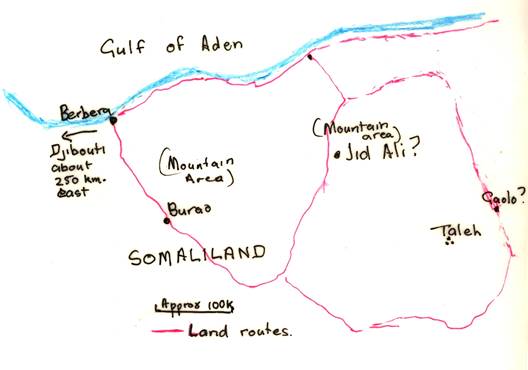 Gulf of Aden
Berbera
Djibouti
about
250 km.
east
(Mountain
Area)
(Mountain
area)
Jid Ali?
Burao
Gaolo?
Taleh
SOMALILAND
Approx 100K
Land routes.